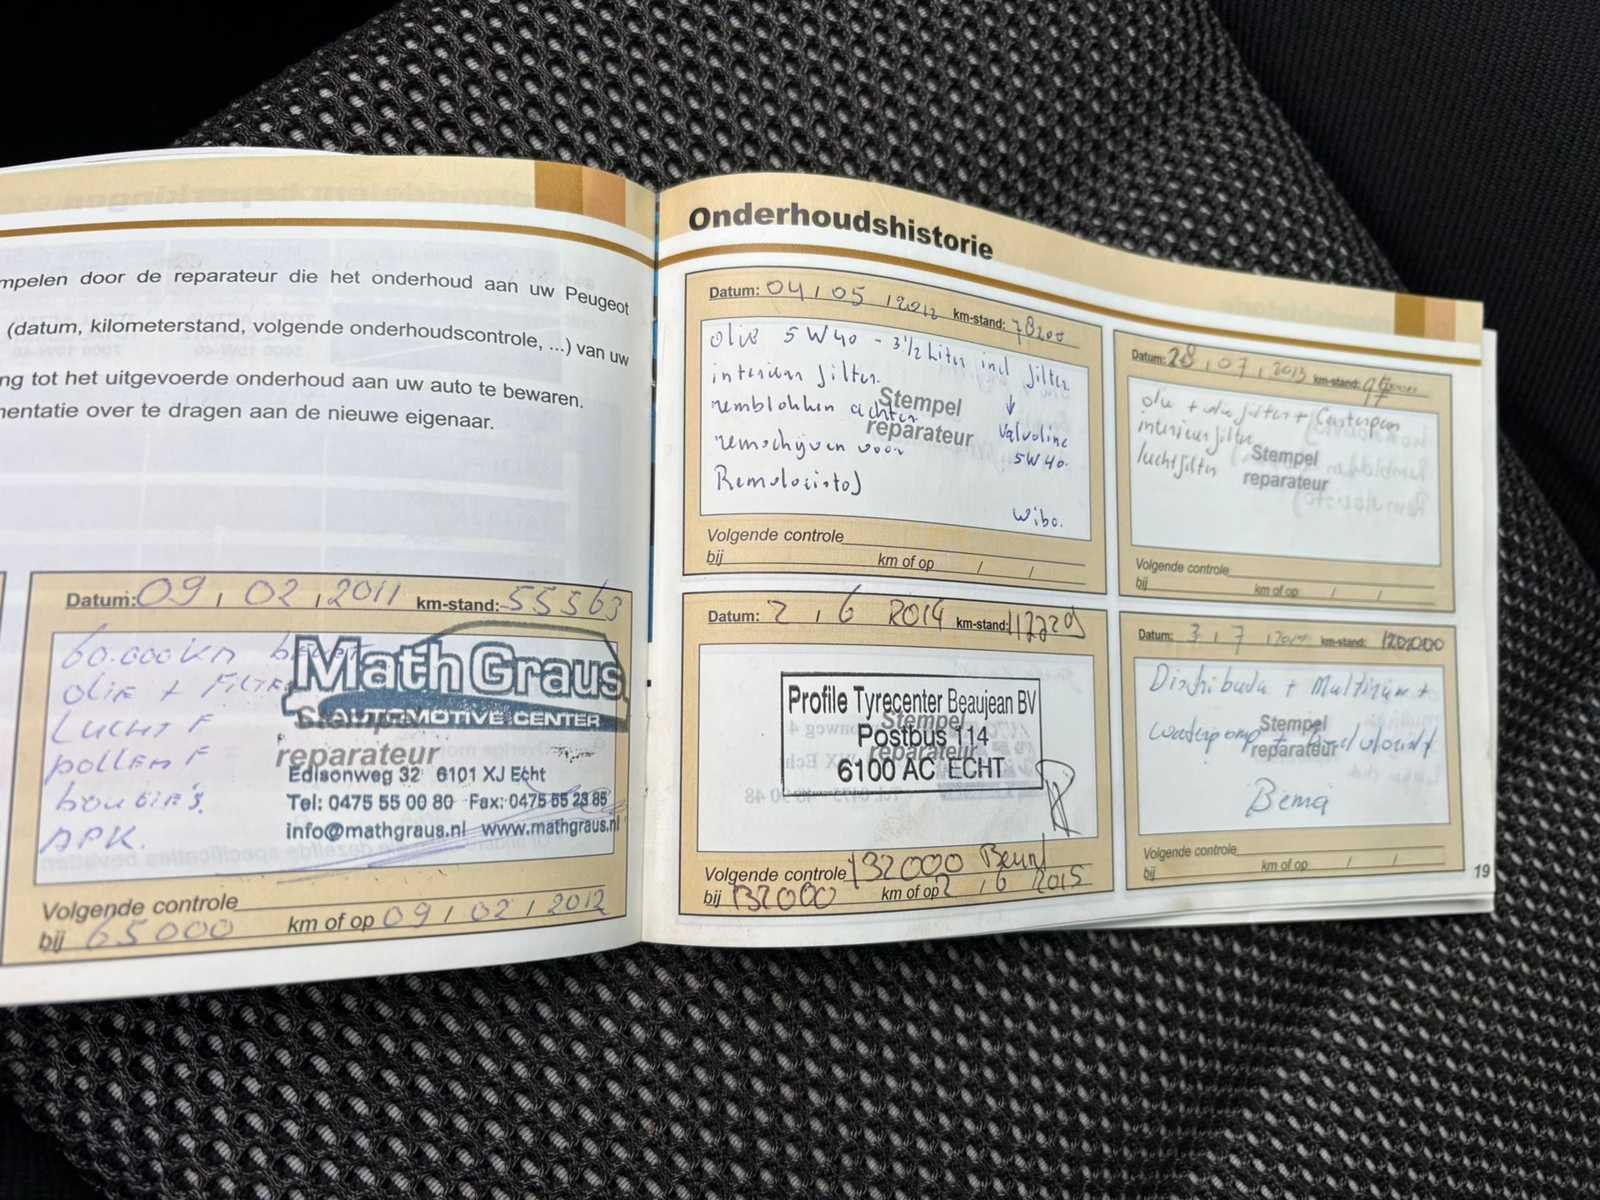 mpelen door de reparateur die het onderhoud aan uw Peugeot
(datum, kilometerstand, volgende onderhoudscontrole, ...) van uw
ng tot het uitgevoerde onderhoud aan uw auto te bewaren.
mentatie over te dragen aan de nieuwe eigenaar.
Datum: 09 / 02 / 2011 km-stand: 55563
60.000 km beurt
olie + Filter
Lucht F
pollen F
bougie's.
APK.
Math Graus
AUTOMOTIVE CENTER
Stempel
reparateur
Edisonweg 32 6101 XJ Echt
Tel: 0475 55 00 80 Fax: 0475 55 23 85
info@mathgraus.nl www.mathgraus.nl
Volgende controle
bij 65000 km of op 09 / 02 / 2012
Onderhoudshistorie
Datum: 04 / 05 / 2012 km-stand: 78200
olie 5W40 - 3 1/2 Liter incl filter
interieur filter.
remblokken achter
remschijven voor
Remvloeistof
Valvoline
5W40.
Wibo.
Stempel
reparateur
Volgende controle
bij km of op / /
Datum: 2 / 6 2014 km-stand:
Profile Tyrecenter Beaujean BV
Postbus 114
6100 AC ECHT
Stempel
reparateur
Volgende controle 132000 Beurt
bij 132000 km of op 2 / 6 2015
Datum: 28 / 07 / 2013 km-stand:
olie + olie filter + Carterpan
interieur filter
luchtfilter
Stempel
reparateur
Volgende controle
bij km of op / /
Datum: 3 / 7 / km-stand: 120000
Distributie + Multiriem +
waterpomp + koelvloeistof
Stempel
reparateur
Volgende controle
bij km of op / /
19